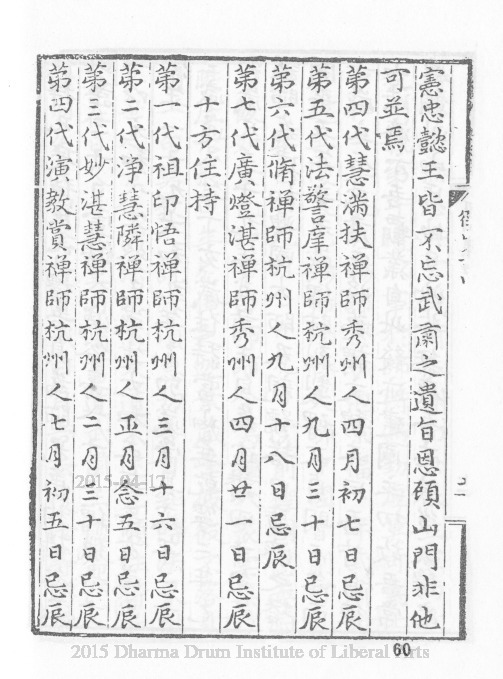 憲忠懿王皆不忘武肅之遺旨恩頋山門非他
可並焉
苐四代慧滿扶禅師秀州人四月初七日忌辰
苐五代法警庠禅師杭州人九月三十日忌辰
苐六代脩禅師杭州人九月十八日忌辰
苐七代廣燈湛禅師秀州人四月廿一日忌辰
十方住持
苐一代祖印悟禅師杭州人三月十六日忌辰
苐二代淨慧隣禅師杭州人正月念五日忌辰
苐三代妙湛慧禅師杭州人二月三十日忌辰
苐四代演教賞禅師杭州人七月初五日忌辰
60
2015-04-17
2015 Dharma Drum Institute of Liberal Arts